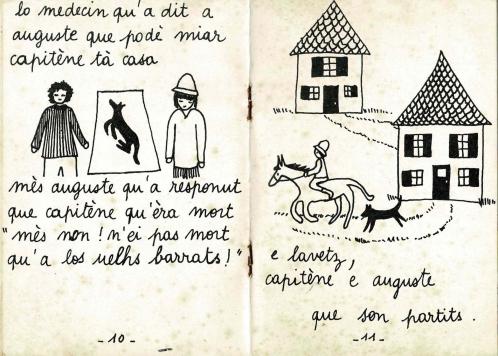 lo medecin qu'a dit a
auguste que podè miar
capitène tà casa
mès auguste qu'a responut
que capitène qu'èra mort
"mès non! n'ei pas mort
qu'a los uelhs barrats!"
-10-
e lavetz,
capitène e auguste
que son partits.
-11-